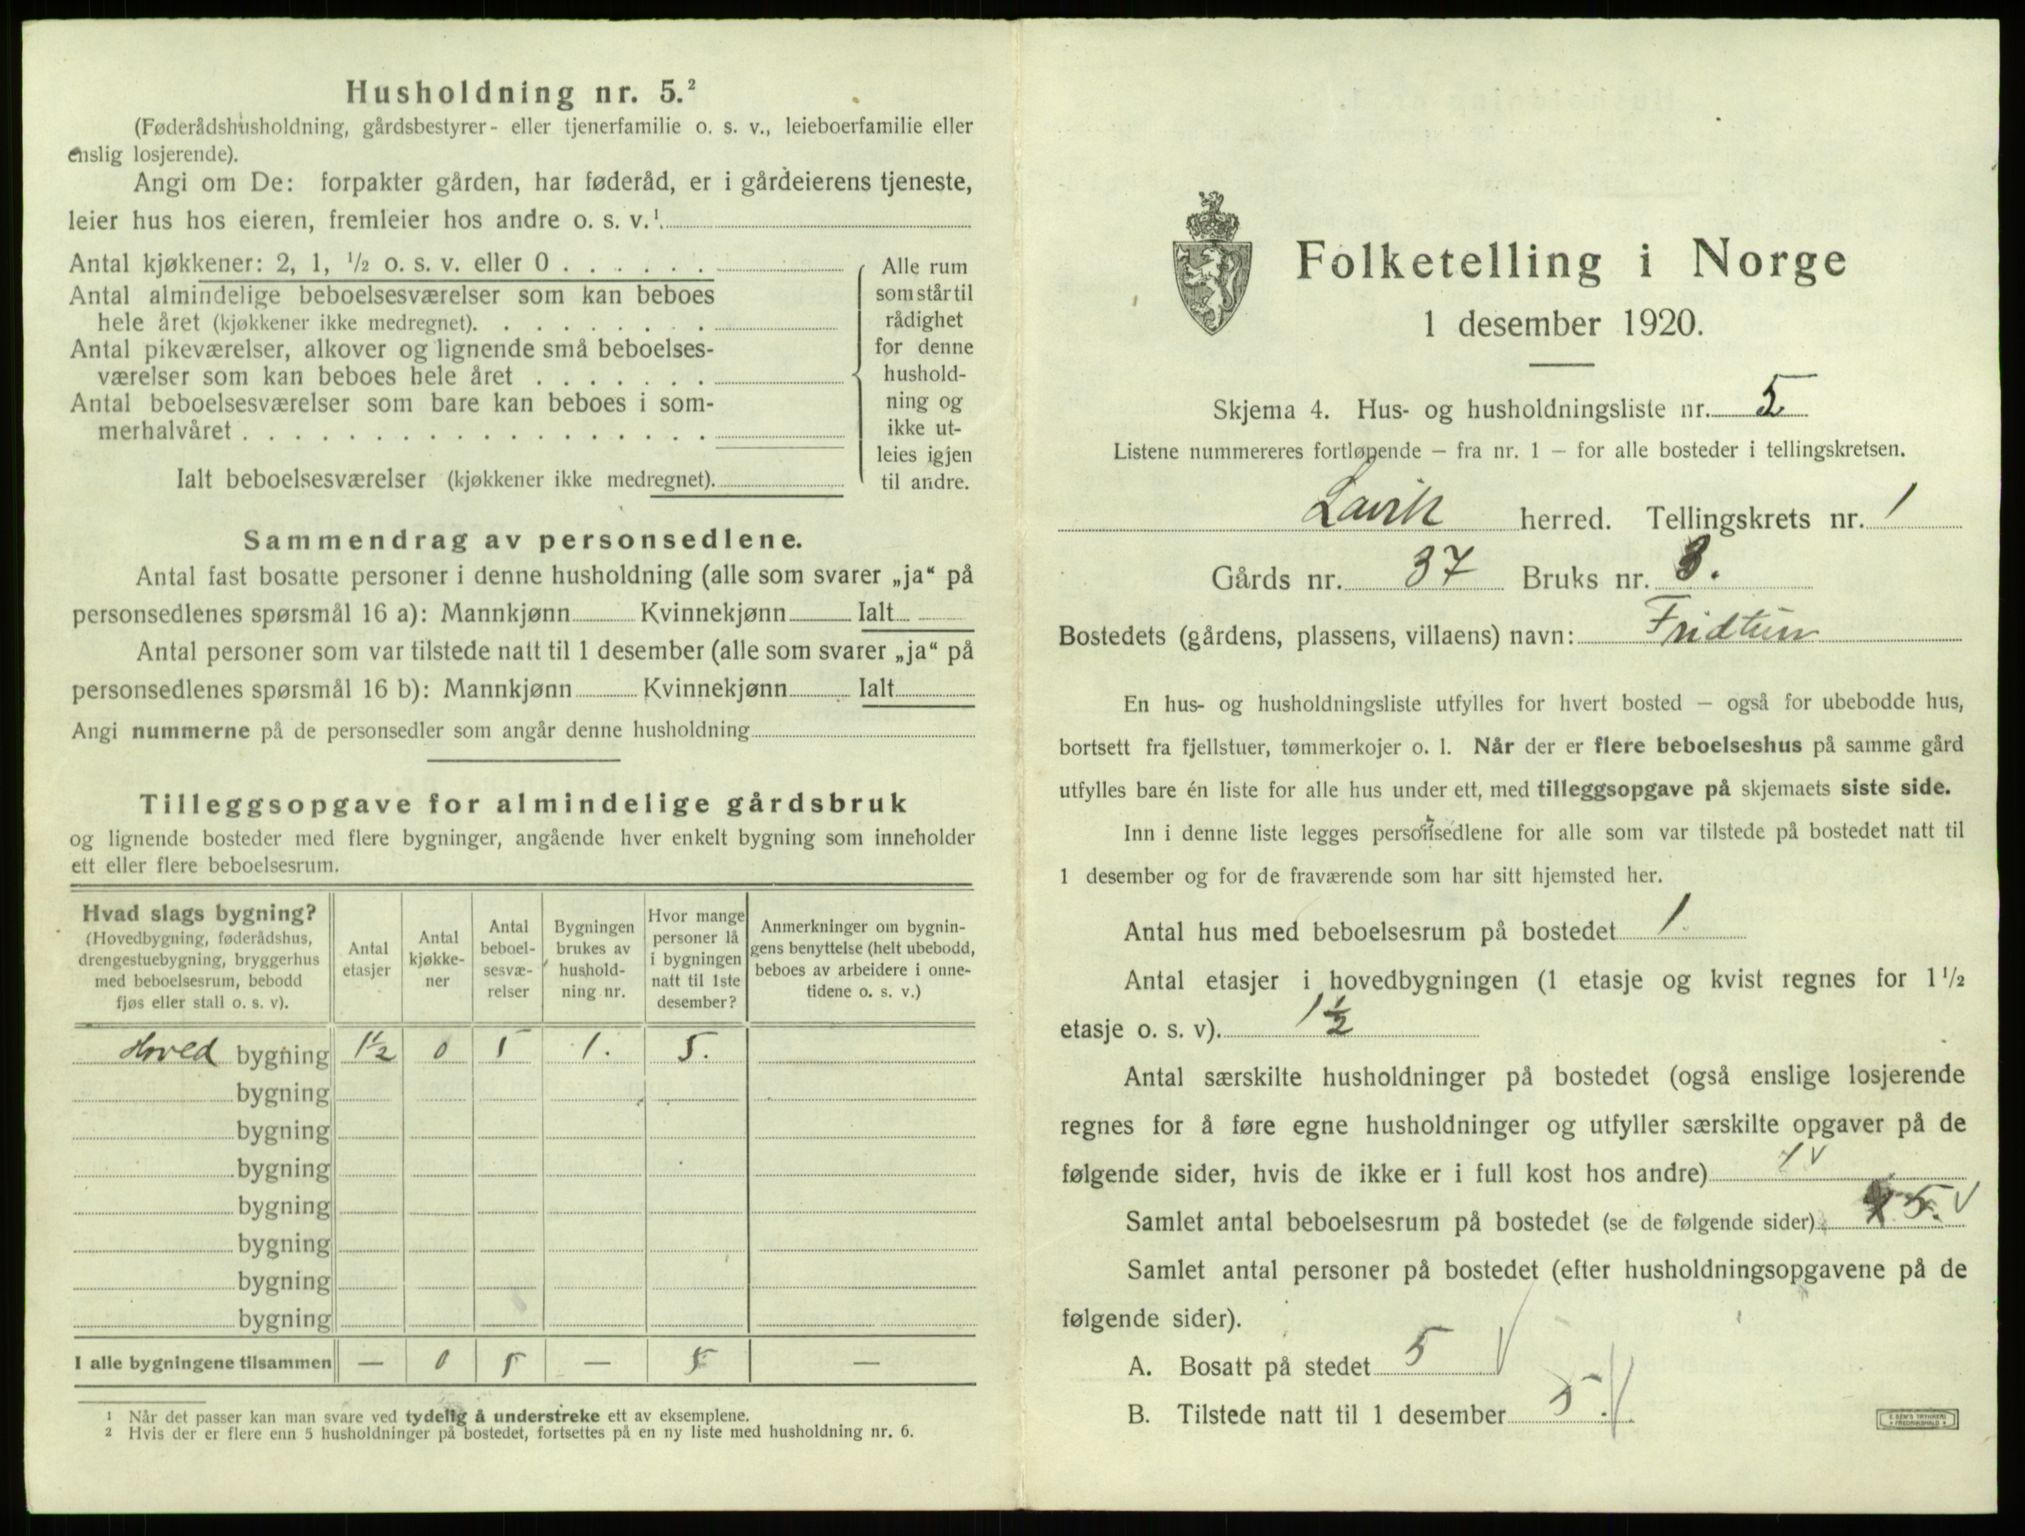 Husholdning nr. 5.²
(Føderådshusholdning, gårdsbestyrer- eller tjenerfamilie o. s. v., leieboerfamilie eller
enslig losjerende).
Angi om De: forpakter gården, har føderåd, er i gårdeierens tjeneste,
leier hus hos eieren, fremleier hos andre o. s. v.¹
Antal kjøkkener: 2, 1, ½ o. s. v. eller 0 . . . . . .
Antal almindelige beboelsesværelser som kan beboes
hele året (kjøkkener ikke medregnet). . . . . . . . .
Antal pikeværelser, alkover og lignende små beboelses-
værelser som kan beboes hele året . . . . . . .
Antal beboelsesværelser som bare kan beboes i som-
merhalvåret . . . . . . . . . . . . . . . . . .
Ialt beboelsesværelser (kjøkkener ikke medregnet).
Alle rum
som står til
rådighet
for denne
hushold-
ning og
ikke ut-
leies igjen
til andre.
Sammendrag av personsedlene.
Antal fast bosatte personer i denne husholdning (alle som svarer „ja“ på
personsedlenes spørsmål 16 a): Mannkjønn Kvinnekjønn Ialt
Antal personer som var tilstede natt til 1 desember (alle som svarer „ja“ på
personsedlenes spørsmål 16 b): Mannkjønn Kvinnekjønn Ialt
Angi nummerne på de personsedler som angår denne husholdning
Tilleggsopgave for almindelige gårdsbruk
og lignende bosteder med flere bygninger, angående hver enkelt bygning som inneholder
ett eller flere beboelsesrum.
Hvad slags bygning?
(Hovedbygning, føderådshus,
drengestuebygning, bryggerhus
med beboelsesrum, bebodd
fjøs eller stall o. s. v).
Antal
etasjer
Antal
kjøkke-
ner
Antal
beboel-
sesvæ-
relser
Bygningen
brukes av
hushold-
ning nr.
Hvor mange
personer lå
i bygningen
natt til 1ste
desember?
Anmerkninger om bygnin-
gens benyttelse (helt ubebodd,
beboes av arbeidere i onne-
tidene o. s. v.)
Hoved bygning 1½ 0 5 1. 5.
bygning
bygning
bygning
bygning
bygning
bygning
bygning
I alle bygningene tilsammen — 0 5 — 5 —
¹ Når det passer kan man svare ved tydelig å understreke ett av eksemplene.
² Hvis der er flere enn 5 husholdninger på bostedet, fortsettes på en ny liste med husholdning nr. 6.
Folketelling i Norge
1 desember 1920.
Skjema 4. Hus- og husholdningsliste nr. 5
Listene nummereres fortløpende – fra nr. 1 – for alle bosteder i tellingskretsen.
Lavik herred. Tellingskrets nr. 1
Gårds nr. 37 Bruks nr. 3.
Bostedets (gårdens, plassens, villaens) navn: Fridtun
En hus- og husholdningsliste utfylles for hvert bosted – også for ubebodde hus,
bortsett fra fjellstuer, tømmerkojer o. l. Når der er flere beboelseshus på samme gård
utfylles bare én liste for alle hus under ett, med tilleggsopgave på skjemaets siste side.
Inn i denne liste legges personsedlene for alle som var tilstede på bostedet natt til
1 desember og for de fraværende som har sitt hjemsted her.
Antal hus med beboelsesrum på bostedet 1.
Antal etasjer i hovedbygningen (1 etasje og kvist regnes for 1½
etasje o. s. v). 1½
Antal særskilte husholdninger på bostedet (også enslige losjerende
regnes for å føre egne husholdninger og utfyller særskilte opgaver på de
følgende sider, hvis de ikke er i full kost hos andre) 1 √
Samlet antal beboelsesrum på bostedet (se de følgende sider) 5. √
Samlet antal personer på bostedet (efter husholdningsopgavene på de
følgende sider).
A. Bosatt på stedet 5 √
B. Tilstede natt til 1 desember 5. √